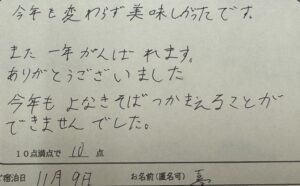 今年も変わらず美味しかったです。
また一年がんばれます。
ありがとうございました
今年もよなきそばつかまえることが
できませんでした。
10点満点で 10 点
宿泊日 11月9日 お名前(匿名可)